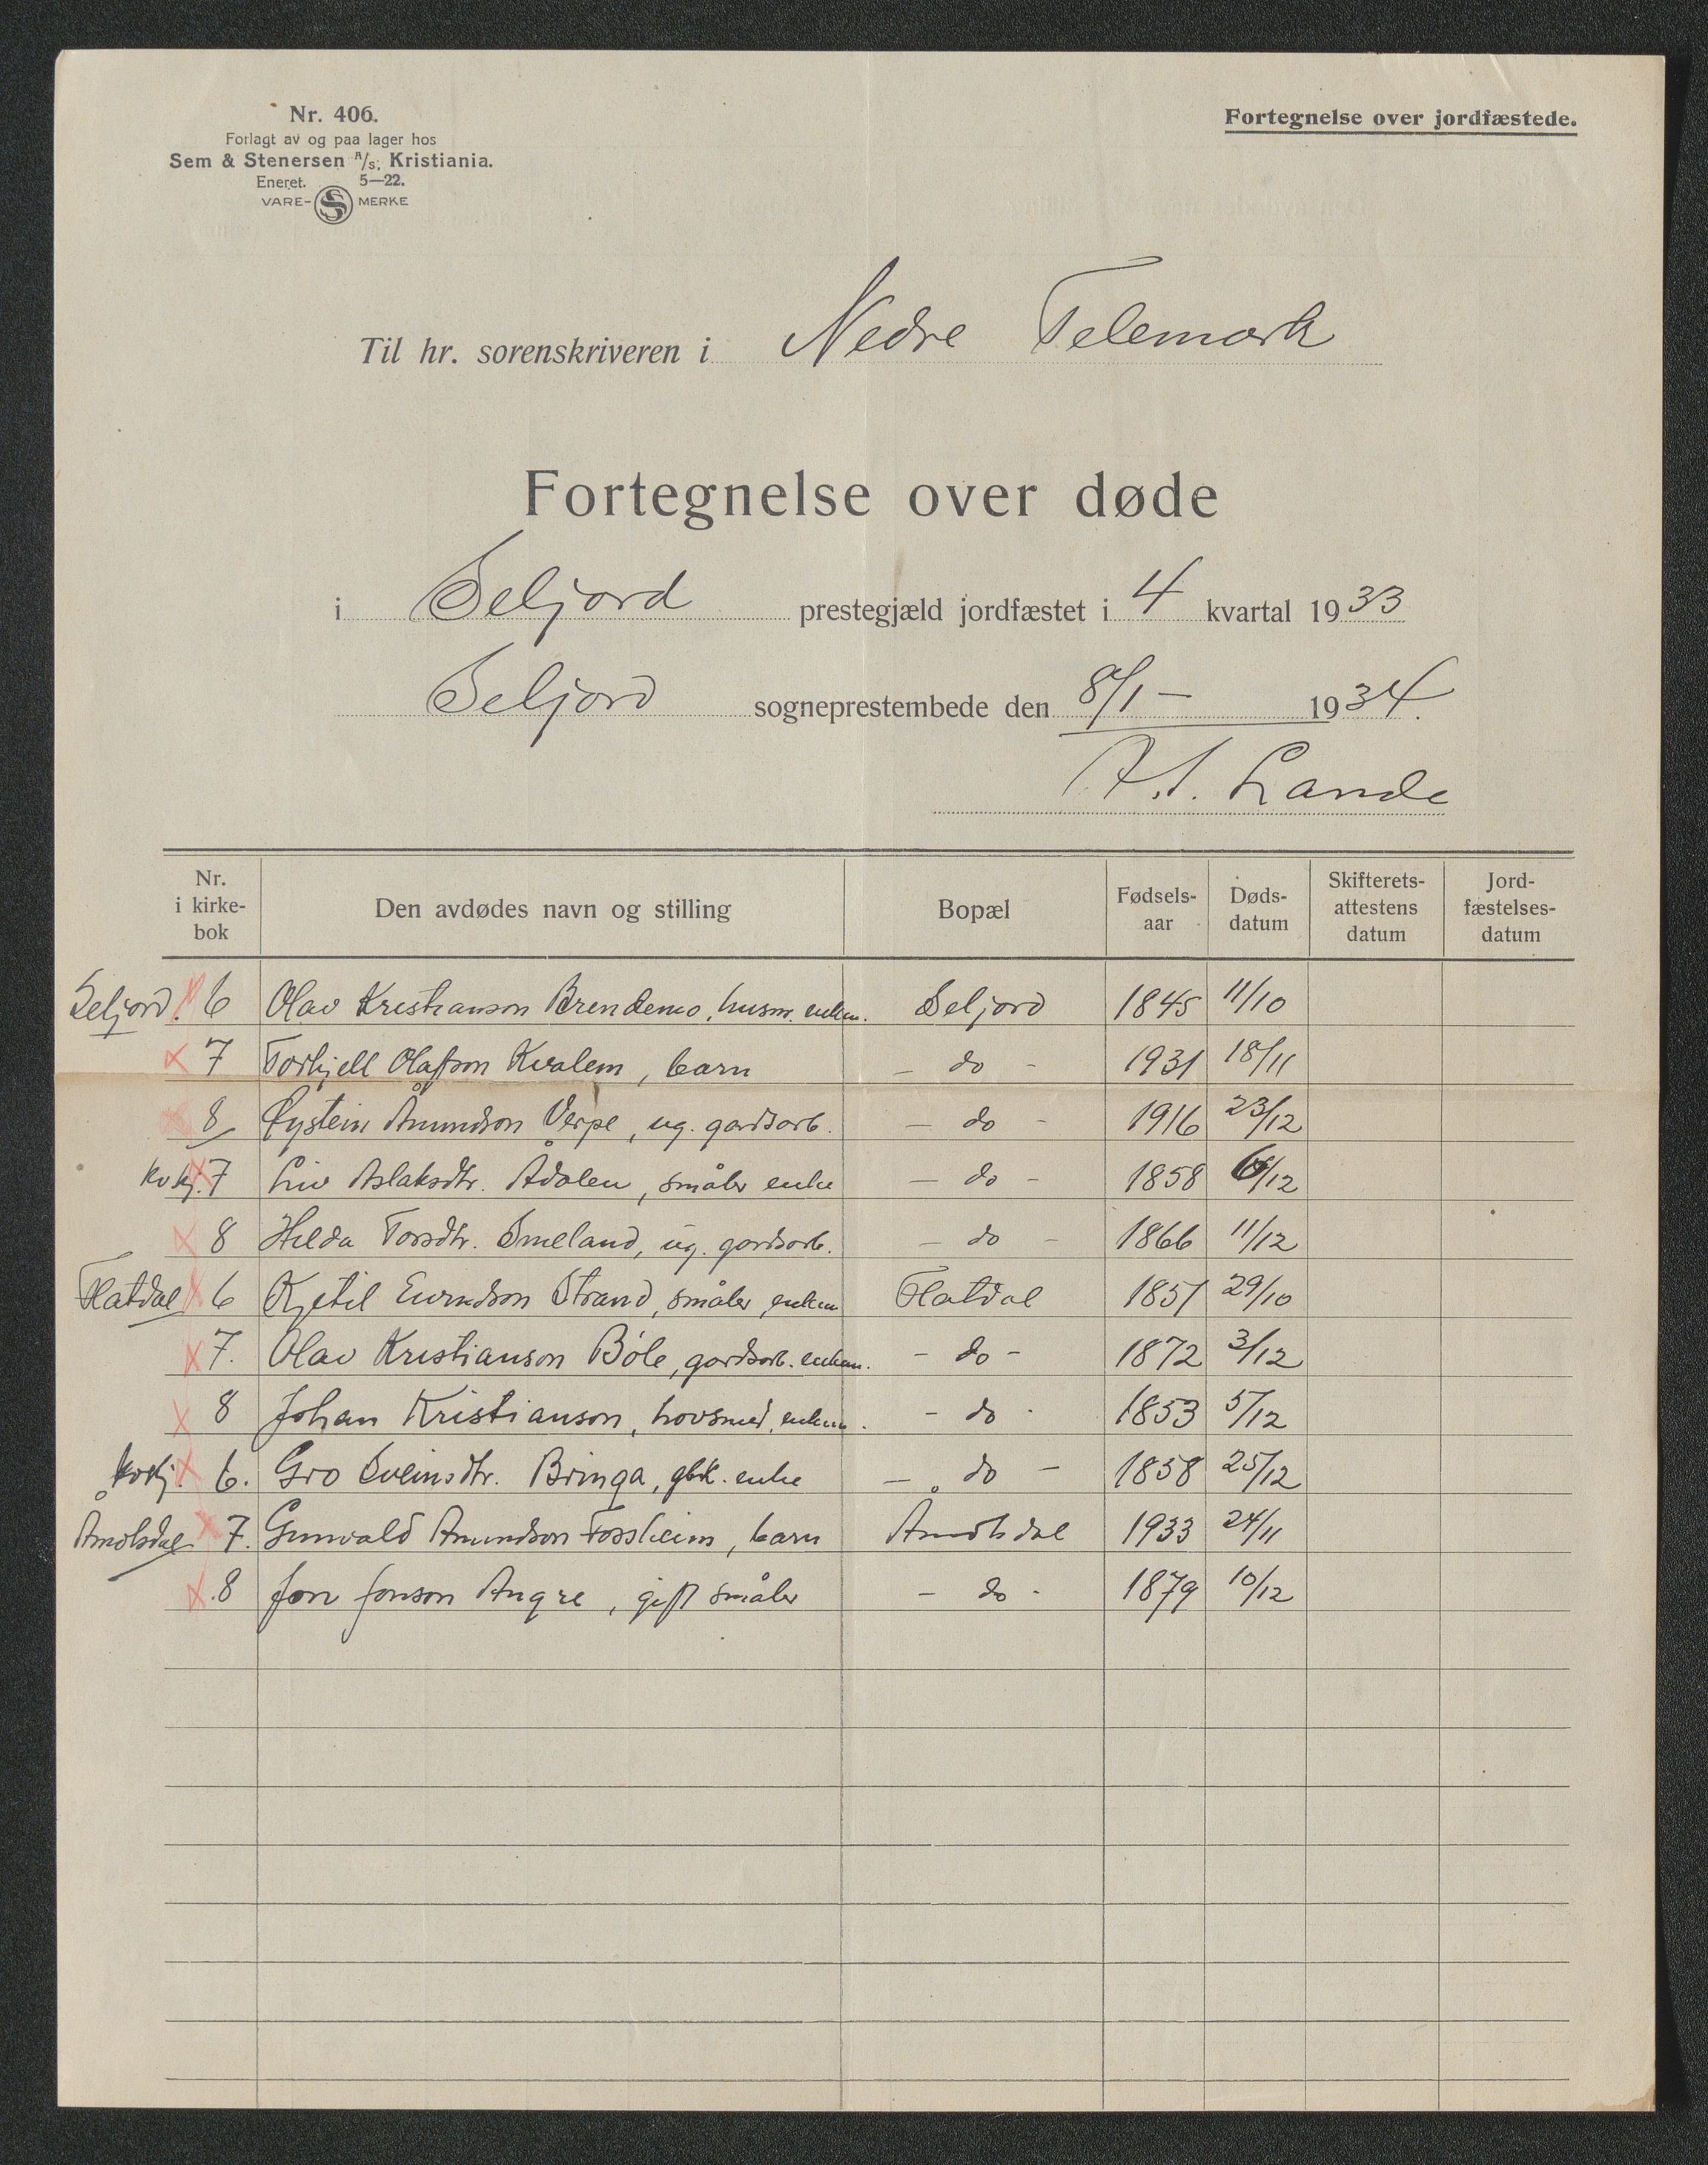 Nr. 406.
Fortegnelse over jordfæstede.
Forlagt av og paa lager hos
Sem & Stenersen A/S. Kristiania.
Eneret. 5—22.
VARE- S MERKE
Til hr. sorenskriveren i Nedre Telemark
Fortegnelse over døde
i Seljord prestegjæld jordfæstet i 4 kvartal 1933
Seljord sogneprestembede den 8/1 — 1934.
Lande
Nr. i kirke- bok Den avdødes navn og stilling Bopæl Fødsels- aar Døds- datum Skifterets- attestens datum Jord- fæstelses- datum
Seljord. 6 Olav Kristianson Brendemo, husm. enkm. Seljord 1845 11/10
7 Torkjell Olafson Kvalem, barn — do - 1931 18/11
8 Øystein Åmundson Verpe, ug. gardsarb. — do - 1916 23/12
kvkj. 7 Liv Aslaksdtr. Ådalen, småbr enke — do - 1858 6/12
8 Hilda Torsdtr. Smeland, ug. gardsarb. — do - 1866 11/12
Flatdal 6 Kjetil Eivindson Strand, småbr enkm Flatdal 1851 29/10
7. Olav Kristianson Bøle, gardsarb. enkem. - do - 1872 3/12
8 Johan Kristianson, hovsmed, enkem. - do - 1853 5/12
kvkj. 6. Gro Sveinsdtr. Bringa, gbk. enke — do — 1858 25/12
Åmotsdal 7. Gunvald Amundson Fossheim, barn Åmotsdal 1933 24/11
8 Jon Jonson Angre, gift småbr - do - 1879 10/12